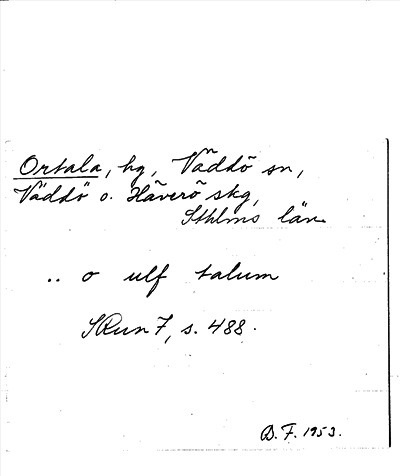 Ortala, hg, Väddö sn,
Väddö o. Häverö skg,
Sthlms län
.. o ulf talum
SRun 7, s. 488.
D. F. 1953.